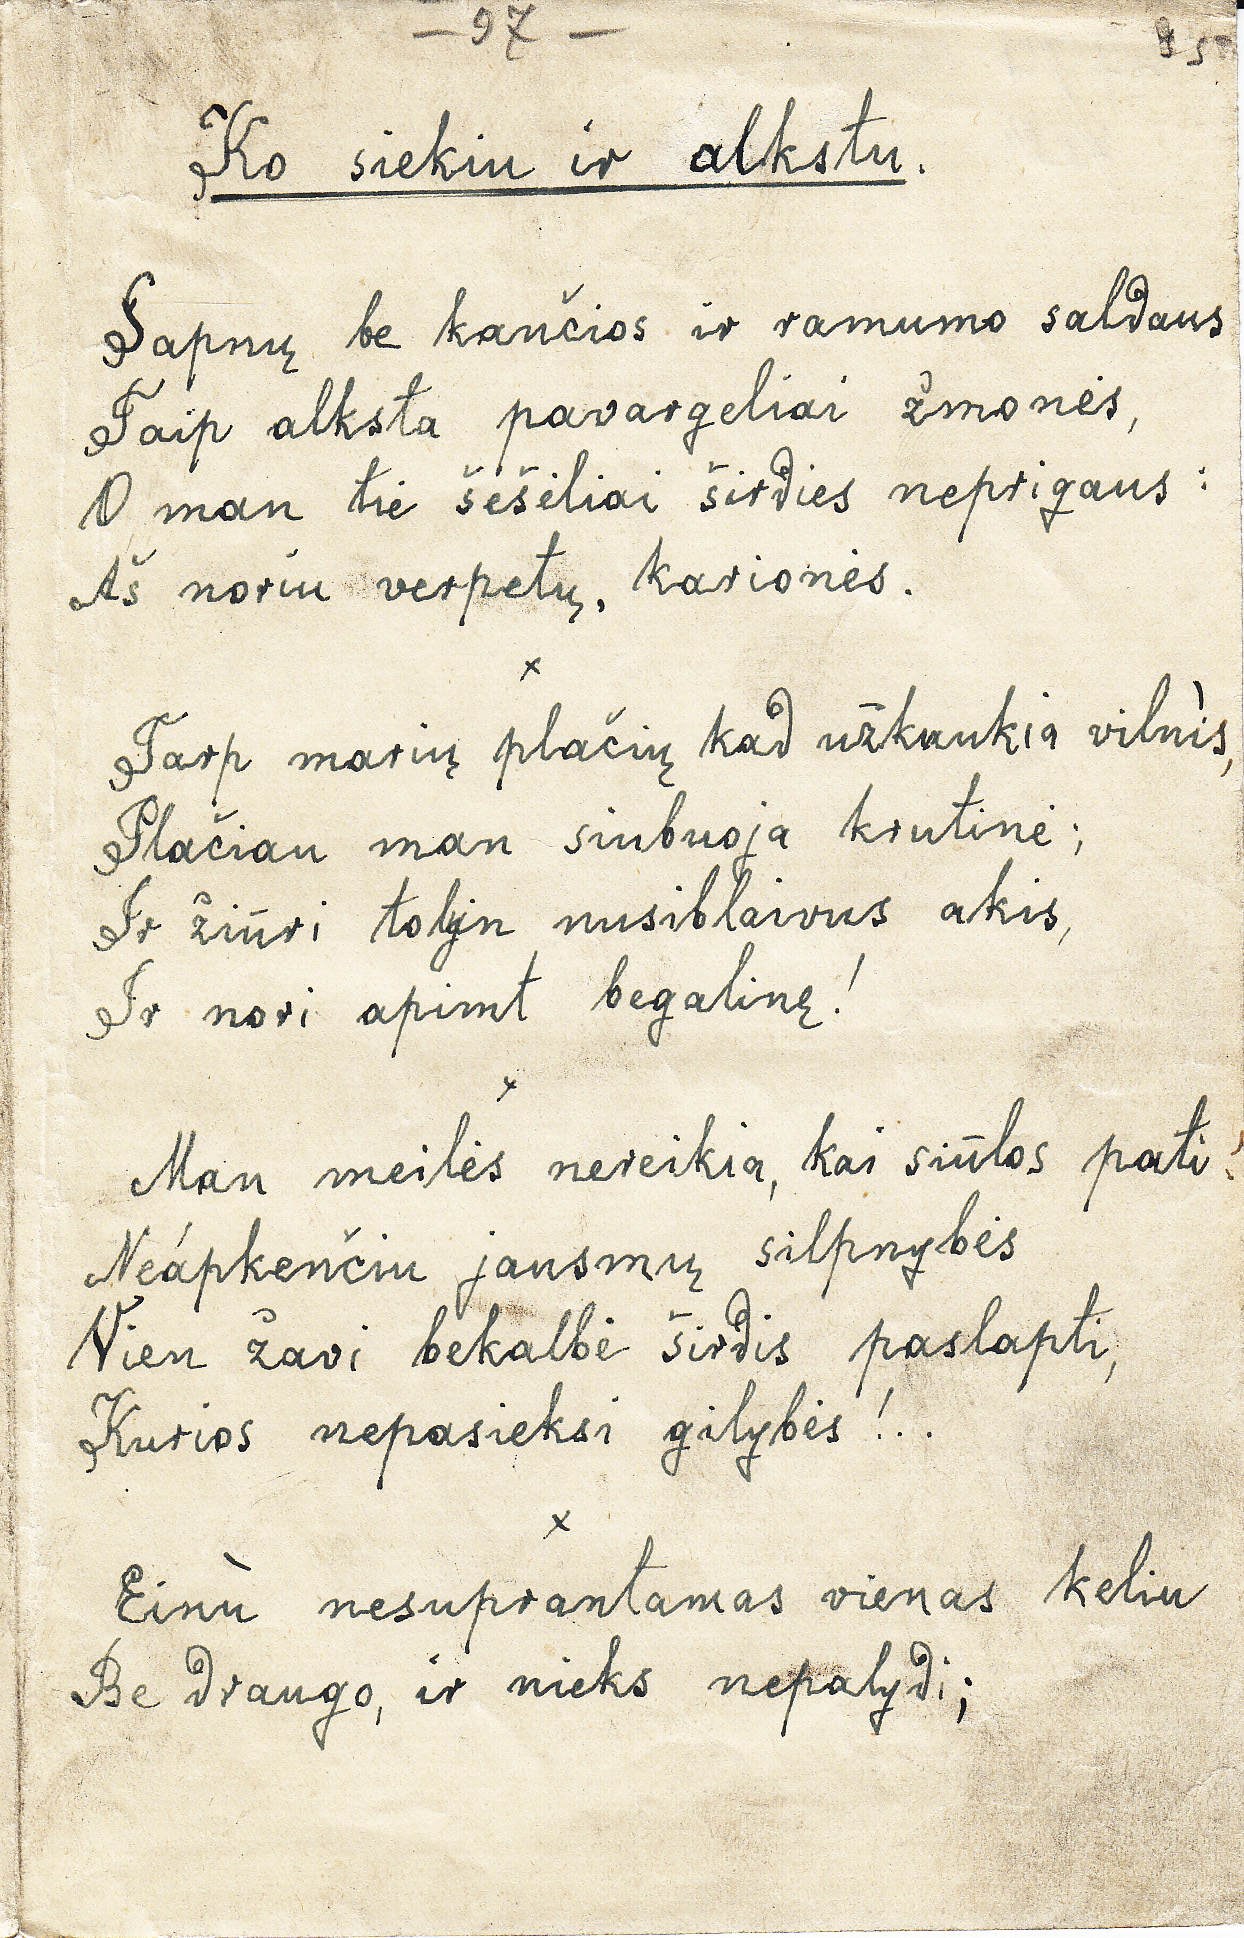 – 97 –
Ko siekiu ir alkstu.
Sapnų be kančios ir ramumo saldaus
Taip alksta pavargeliai žmonės,
O man tie šešėliai širdies neprigaus:
Aš noriu verpetų, karionės.
x
Tarp marių plačių kad užkaukia vilnìs,
Plačiau man siubuoja krutinė;
Ir žiūri tolyn nusiblaivus akis,
Ir nori apimt begalinę!
x
Man meilės nereikia, kai siūlos pati:
Neápkenčiu jausmų silpnybės
Vien žavi bekalbė širdis paslapti,
Kurios nepasieksi gilybės!..
x
Einù nesuprantamas vienas keliu
Be draugo, ir nieks nepalydi;